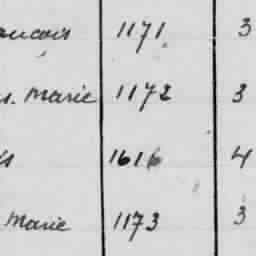 ancois 1171 3
s. Marie 1172 3
is 1616 4
Marie 1173 3